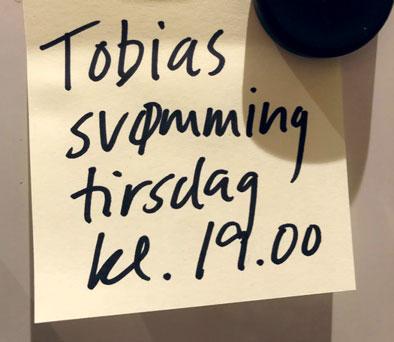 Tobias
svømming
tirsdag
kl. 19.00